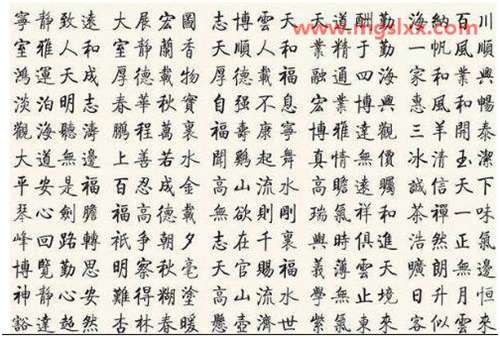 www.mgslxx.com
寧靜致遠 大展宏圖 志博雲天 天道酬勤 海納百川
室雅人和 室靜蘭香 天順人和 業精于勤 一帆風順
鴻運天成 厚德載物 厚德載福 融通四海 家和業興
淡泊明志 春華秋實 自强不息 宏業博興 惠風和暢
觀海聽濤 鵬程萬裏 福壽康寧 博雅達觀 三羊開泰
大道無邊 上善若水 聞鷄起舞 真情無價 冰清玉潔
平安是福 百忍成金 高山流水 高瞻遠矚 誠信天下
琴心劍膽 福高德載 無欲則剛 瑞氣祥和 茶禪一味
峰回路轉 祇争朝夕 志在千裏 與時俱進 浩然正氣
博覽勤思 明察秋毫 天官賜福 義薄雲天 曠朗無邊
神静心安 難得糊塗 高山福水 學無止境 日升月恒
豁達超然 杏林春暖 懸壺濟世 紫氣東來 客似雲來